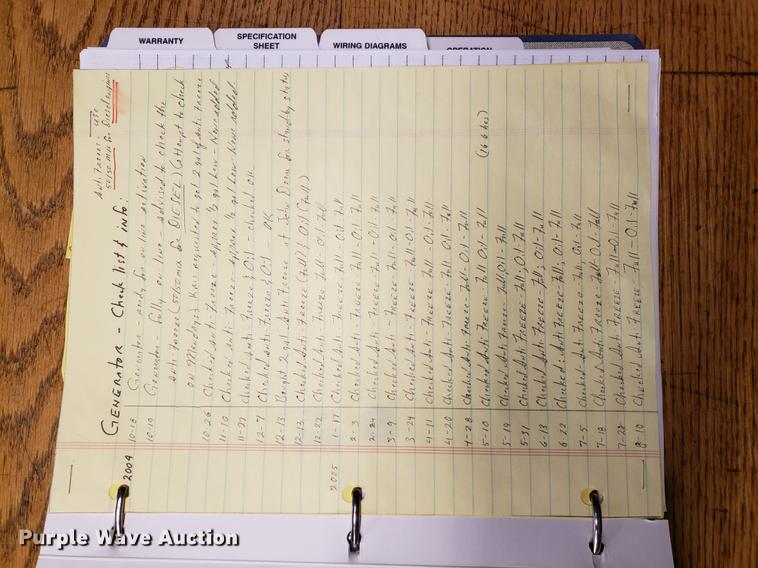 WARRANTY
SPECIFICATION
SHEET
WIRING DIAGRAMS
OPERATION
Anti Freeze - use
50/50 mix for Diesel engines
GENERATOR - Check list & info:
2004
10-18 Generator - ready for on line activation
10-19 Generator - fully on line - advised to check the
anti freeze (50/50 mix for DIESEL) (attempt to check
on Mondays) requested to get 2 gal of anti freeze
10-26 Checked Anti-Freeze approx 1/2 gal low - None added
11-10 Checked Anti-Freeze - approx 1/2 gal low - None added
11-22 Checked Anti-Freeze & Oil - checked OK
12-7 Checked Anti-Freeze & Oil - OK
12-13 Bought 2 gal Anti Freeze at John Deere for standby status
12-13 Checked Anti Freeze (Full) & Oil (Full)
12-22 Checked Anti Freeze Full - Oil Full
2005
1-17 Checked Anti-Freeze Full - Oil Full
2-3 Checked Anti-Freeze Full - Oil Full
2-24 Checked Anti-Freeze Full - Oil Full
3-9 Checked Anti-Freeze Full - Oil Full
3-24 Checked Anti-Freeze Full & Oil Full
4-11 Checked Anti-Freeze Full - Oil - Full
4-20 Checked Anti-Freeze Full Oil - Full
4-28 Checked Anti-Freeze - Full - Oil - Full
5-10 Checked Anti Freeze Full Oil - Full (16.6 hrs)
5-19 Checked Anti Freeze Full, Oil - Full
5-31 Checked Anti-Freeze Full, Oil - Full
6-13 Checked Anti-Freeze - Full, Oil - Full
6-22 Checked Anti Freeze Full, Oil - Full
7-5 Checked Anti-Freeze Full, Oil - Full
7-18 Checked Anti Freeze Full - Oil - Full
7-28 Checked Anti-Freeze - Full - Oil - Full
8-10 Checked Anti Freeze - Full - Oil - Full
Purple Wave Auction